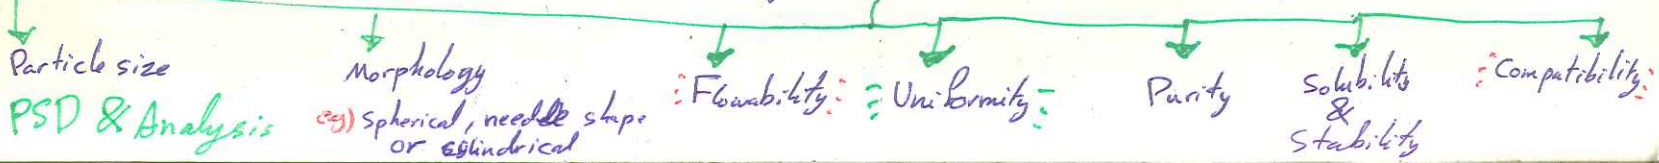 Particle size
PSD & Analysis
Morphology
eg) Spherical, needle shape
or cylindrical
Flowability
Uniformity
Purity
Solubility
&
Stability
Compatibility